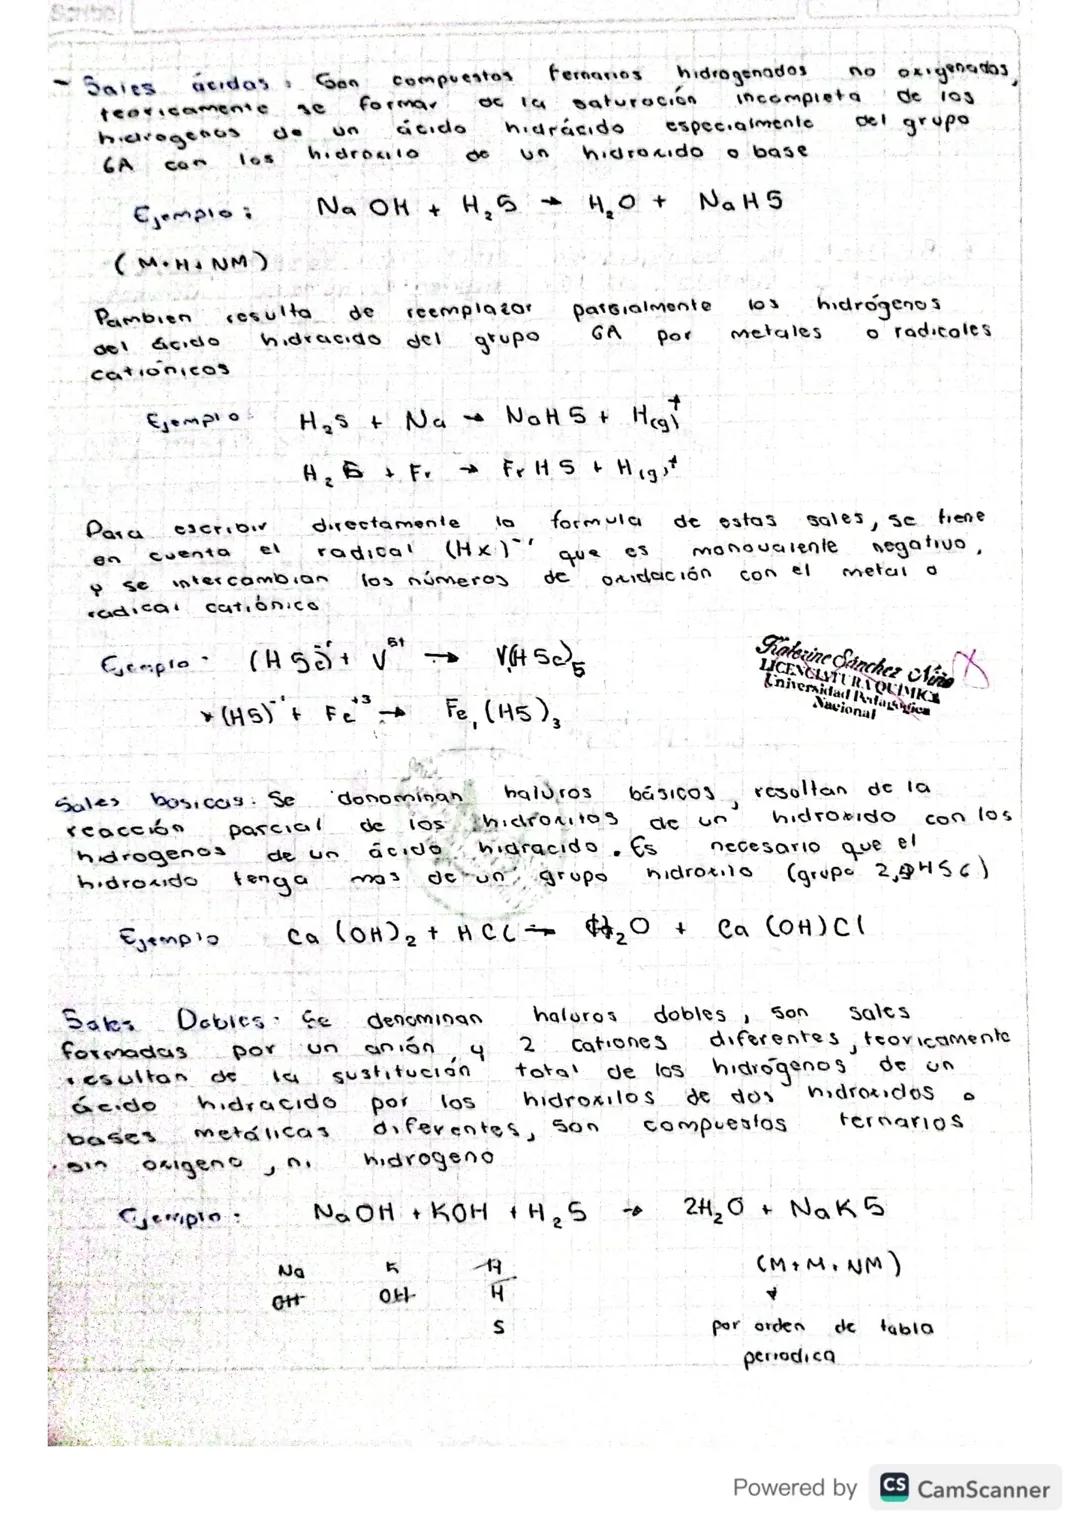 - Sales ácidas: Son compuestos ternarios hidrogenados no oxigenados,
teoricamente se forman de la saturación incompleta de los
hidrogenos de un ácido hidrácido especialmente del grupo
6A con los hidroxilo de un hidroxido o base
Ejemplo: Na OH + H₂S → H₂O + NaHS
(M+H+NM)
Tambien resulta de reemplazar parsialmente los hidrógenos
del ácido hidracido del grupo 6A por metales o radicales
catiónicos
Ejemplo: H₂S + Na → NaHS + H(g)↑
H₂S + Fr → FrHS + H(g)↑
Para escribir directamente la formula de estas sales, se tiene
en cuenta el radical (Hx)⁻¹ que es monovalente negativo,
y se intercambian los números de oxidación con el metal o
radical catiónico
Ejemplo: (HSe)⁻¹ + V⁵⁺ → V(HSe)₅
* (HS)⁻¹ + Fe⁺³ → Fe₁(HS)₃
Katerine Sánchez Niño
LICENCIATURA QUIMICA
Universidad Pedagógica
Nacional
Sales basicas: Se donominan haluros básicos, resultan de la
reacción parcial de los hidroxilos de un hidroxido con los
hidrogenos de un ácido hidracido. Es necesario que el
hidroxido tenga mas de un grupo hidroxilo
Ejemplo Ca(OH)₂ + HCl → H₂O + Ca(OH)Cl
Sales Dobles: Se denominan haluros dobles, son sales
formadas por un anión y 2 cationes diferentes, teoricamente
resultan de la sustitución total de los hidrógenos de un
ácido hidracido por los hidroxilos de dos hidroxidos o
bases metálicas diferentes, son compuestos ternarios
sin oxigeno, ni hidrogeno
Ejemplo: NaOH + KOH + H₂S → 2H₂O + NaKS
Na K H (M+M+NM)
OH OH H
S por orden de tabla
periodica
Powered by CS CamScanner